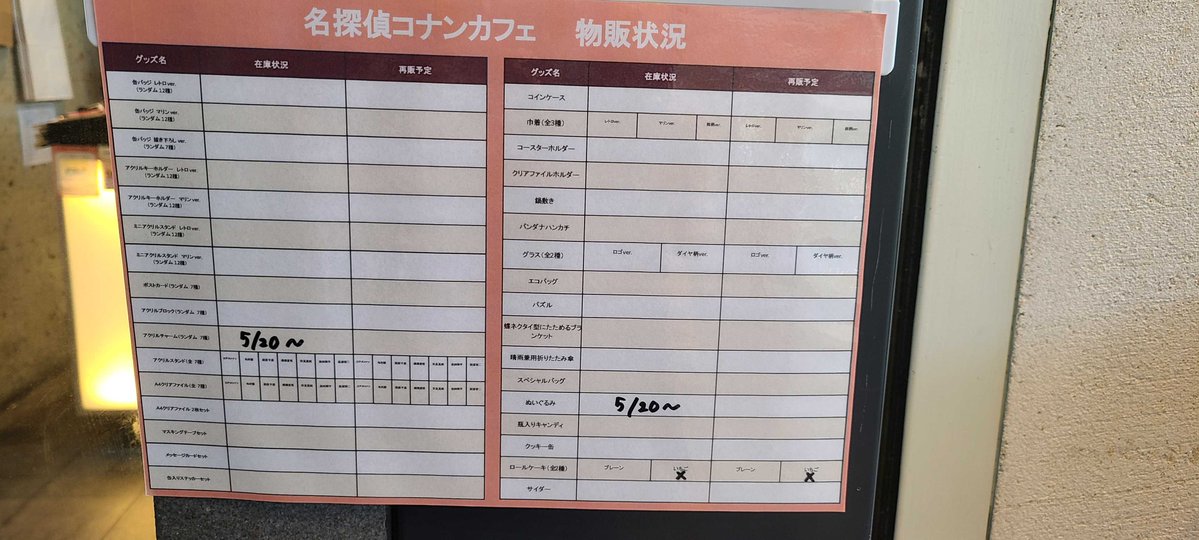 名探偵コナンカフェ 物販状況
グッズ名 在庫状況 再販予定
缶バッジ レトロver.
(ランダム 12種)
缶バッジ マリンver.
(ランダム 12種)
缶バッジ 描き下ろしver.
(ランダム 7種)
アクリルキーホルダー レトロver.
(ランダム 12種)
アクリルキーホルダー マリンver.
(ランダム 12種)
ミニアクリルスタンド レトロver.
(ランダム 12種)
ミニアクリルスタンド マリンver.
(ランダム 12種)
ポストカード(ランダム 7種)
アクリルブロック(ランダム 7種)
アクリルチャーム(ランダム 7種) 5/20〜
アクリルスタンド(全 7種)
A4クリアファイル(全 7種)
A4クリアファイル 2枚セット
マスキングテープセット
メッセージカードセット
缶入りステッカーセット
グッズ名 在庫状況 再販予定
コインケース
巾着(全3種) レトロver. マリンver. レトロver. マリンver.
コースターホルダー
クリアファイルホルダー
鍋敷き
バンダナハンカチ
グラス(全2種) ロゴver. ダイヤ柄ver. ロゴver. ダイヤ柄ver.
エコバッグ
パズル
蝶ネクタイ型にたためるブラ
ンケット
晴雨兼用折りたたみ傘
スペシャルバッグ
ぬいぐるみ 5/20〜
瓶入りキャンディ
クッキー缶
ロールケーキ(全2種) プレーン いちご x プレーン いちご x
サイダー